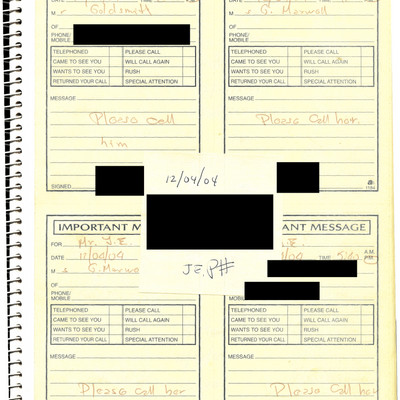 M s Goldsmith
OF
PHONE/
MOBILE
TELEPHONED PLEASE CALL
CAME TO SEE YOU WILL CALL AGAIN
WANTS TO SEE YOU RUSH
RETURNED YOUR CALL SPECIAL ATTENTION
MESSAGE
Please call
him
SIGNED
M s G. Maxwell
OF
PHONE/
MOBILE
TELEPHONED PLEASE CALL
CAME TO SEE YOU WILL CALL AGAIN
WANTS TO SEE YOU RUSH
RETURNED YOUR CALL SPECIAL ATTENTION
MESSAGE
Please call her.
12/04/04
J.E. P#
IMPORTANT M
FOR Mr. J.E.
DATE 12/04/04
M s G. Maxwe
OF
PHONE/
MOBILE
TELEPHONED PLEASE CALL
CAME TO SEE YOU WILL CALL AGAIN
WANTS TO SEE YOU RUSH
RETURNED YOUR CALL SPECIAL ATTENTION
MESSAGE
Please call her
ANT MESSAGE
.E.
/04 TIME A.M.
P.M.
TELEPHONED PLEASE CALL
CAME TO SEE YOU WILL CALL AGAIN
WANTS TO SEE YOU RUSH
RETURNED YOUR CALL SPECIAL ATTENTION
MESSAGE
Please call her